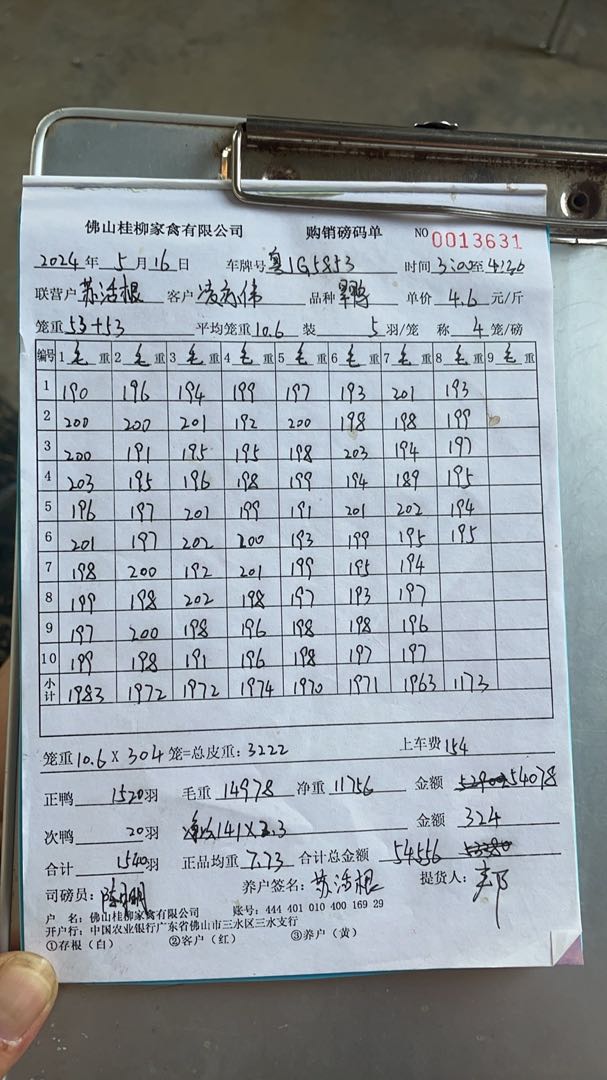 佛山桂柳家禽有限公司 购销磅码单 NO 0013631
2024年 5月16日 车牌号 粤1G5853 时间 3:00至4:20
联营户 苏活根 客户 凌 伟 品种 鸭 单价 4.6 元/斤
笼重 53+53 平均笼重 10.6 装 5 羽/笼 称 4 笼/磅
编号 1 毛 重 2 毛 重 3 毛 重 4 毛 重 5 毛 重 6 毛 重 7 毛 重 8 毛 重 9 毛 重
1 190 196 194 199 197 193 201 193
2 200 200 201 192 200 198 198 199
3 200 191 195 195 198 203 194 197
4 203 195 196 198 199 194 189 195
5 196 197 201 199 191 201 202 194
6 201 197 202 200 193 199 195 195
7 198 200 192 201 199 195 194
8 199 198 202 198 197 193 197
9 197 200 198 196 198 198 196
10 199 198 191 196 198 197 197
小计 1983 1972 1972 1974 1970 1971 1963 1173
笼重 10.6 X 304 笼=总皮重: 3222 上车费 154
正鸭 1520 羽 毛重 14978 净重 11756 金额 54078
次鸭 20 羽 141X2.3 金额 324
合计 1540 羽 正品均重 7.73 合计总金额 54556
司磅员: 养户签名: 苏活根 提货人:
户 名: 佛山桂柳家禽有限公司 账号: 444 401 010 400 169 29
开户行: 中国农业银行广东省佛山市三水区三水支行
①存根（白） ②客户（红） ③养户（黄）